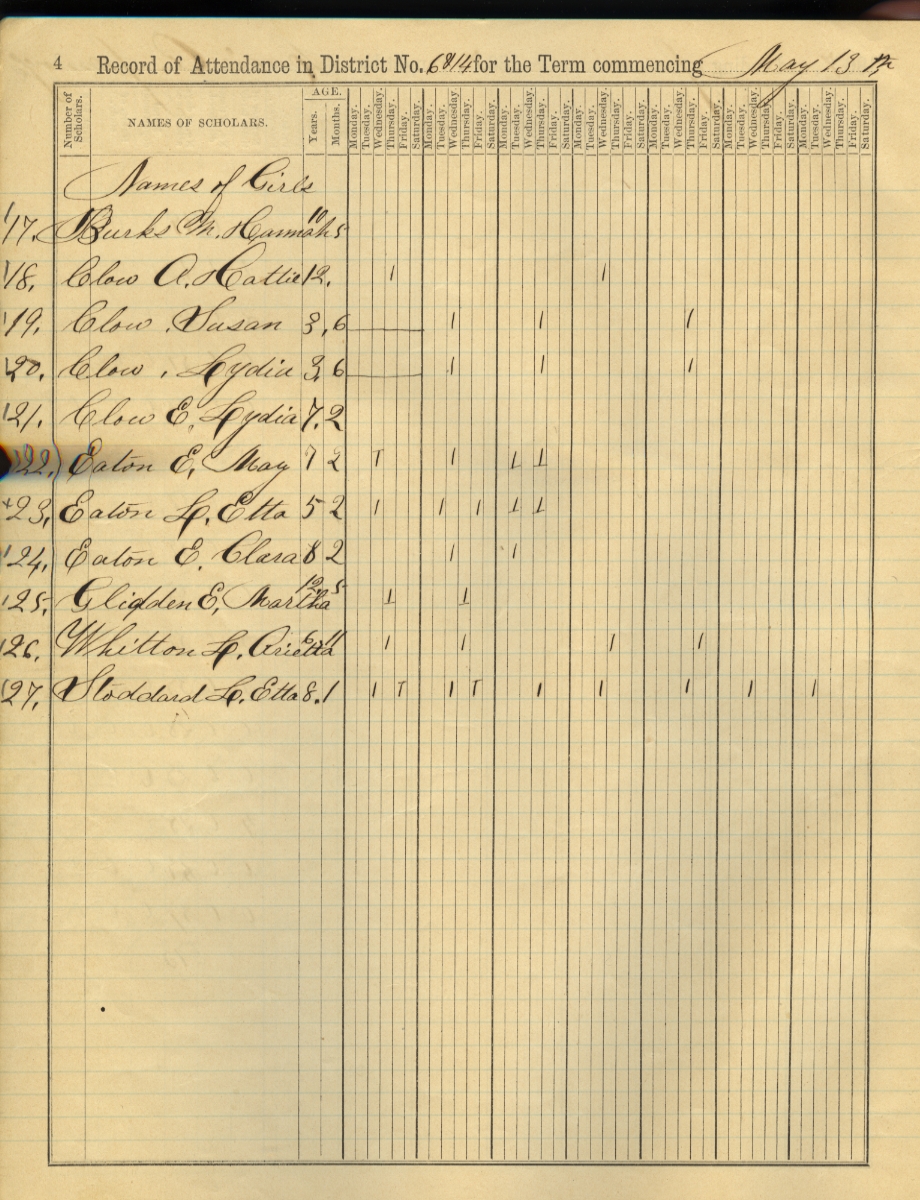 4 Record of Attendance in District No. 6 & 14 for the Term commencing May 13th
Number of Scholars. NAMES OF SCHOLARS. AGE. Years. Months. Monday. Tuesday. Wednesday. Thursday. Friday. Saturday. Monday. Tuesday. Wednesday. Thursday. Friday. Saturday. Monday. Tuesday. Wednesday. Thursday. Friday. Saturday. Monday. Tuesday. Wednesday. Thursday. Friday. Saturday. Monday. Tuesday. Wednesday. Thursday. Friday. Saturday. Monday. Tuesday. Wednesday. Thursday. Friday. Saturday. Monday. Tuesday. Wednesday. Thursday. Friday. Saturday.
Names of Girls
17. Burks M. Hannah 10 5
18. Clow A. Hattie 12.
19. Clow . Susan 3, 6
20. Clow , Lydia 3, 6
21. Clow E. Lydia 7. 2
22. Eaton E, May 7 2
23, Eaton L. Etta 5 2
24, Eaton E. Clara 8 2
25. Glidden E, Martha 12. 5
26. Whitton L. Arietta 6. 11
27, Stoddard L. Etta 8. 1